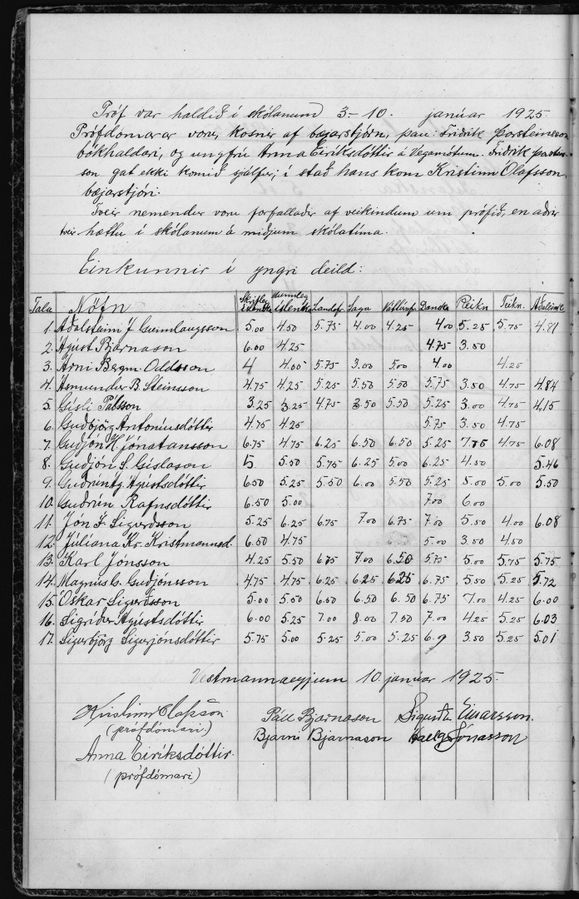 Próf var haldið í skólanum 3-10. janúar 1925
Prófdómarar voru, kosnir af bæjarstjórn, þau Friðrik Þorsteinsson
bókhaldari, og ungfrú Anna Eiríksdóttir á Vegamótum. Friðrik Þorsteins-
son gat ekki komið sjálfur, í stað hans kom Kristinn Ólafsson
bæjarstjóri.
Tveir nemendur voru forfallaðir af veikindum um prófið, en aðrir
tveir hættu í skólanum á miðjum skólatíma.
Einkunnir í yngri deild:
Tala Nöfn Skrifleg íslenska Munnleg íslenska Landafr. Saga Náttúrufr. Danska Reikn. Teikn. Aðaleink.
1. Aðalsteinn J. Gunnlaugsson 5.00 4.50 5.75 4.00 4.25 4.00 5.25 5.75 4.81
2. Ágúst Bjarnason 6.00 4.25 4.75 3.50
3. Árni Bergm. Oddsson 4 4.00 5.75 3.00 5.00 4.00 4.25
4. Ásmundur B. Steinsson 4.75 4.25 5.25 5.50 5.50 5.75 3.50 4.75 4.84
5. Gísli Pálsson 3.25 3.25 4.75 3.50 5.50 5.25 3.00 4.75 4.15
6. Guðbjörg Antoníusdóttir 4.75 4.25 5.75 3.50 4.75
7. Guðjón H. Jónatansson 6.75 4.75 6.25 6.50 6.50 5.25 7.75 4.75 6.08
8. Guðjón S. Gíslason 5 5.50 5.75 6.25 5.00 6.25 4.50 5.46
9. Guðrún Ág. Ágústsdóttir 6.50 5.25 5.50 6.00 5.50 5.25 5.00 5.00 5.50
10. Guðrún Rafnsdóttir 6.50 5.00 7.00 6.00
11. Jón F. Sigurðsson 5.25 6.25 6.75 7.00 6.75 7.00 5.50 4.00 6.08
12. Júlíana Kr. Kristmannsd. 6.50 4.75 5.00 3.50 4.50
13. Karl Jónsson 4.25 5.50 6.75 7.00 6.50 5.75 5.00 5.75 5.75
14. Magnús G. Guðjónsson 4.75 4.75 6.25 6.25 6.25 6.75 5.50 5.25 5.72
15. Óskar Sigurðsson 5.00 5.50 6.50 6.50 6.50 6.75 7.00 4.25 6.00
16. Sigríður Ágústsdóttir 6.00 5.25 7.00 8.00 7.50 7.00 4.25 5.25 6.03
17. Sigurbjörg Sigurjónsdóttir 5.75 5.00 5.25 5.00 5.25 6.9 3.50 5.25 5.01
Vestmannaeyjum 10 janúar 1925.
Kristinn Ólafsson. Páll Bjarnason Einarsson.
(prófdómari) Bjarni Bjarnason Jónasson
Anna Eiríksdóttir
(prófdómari)